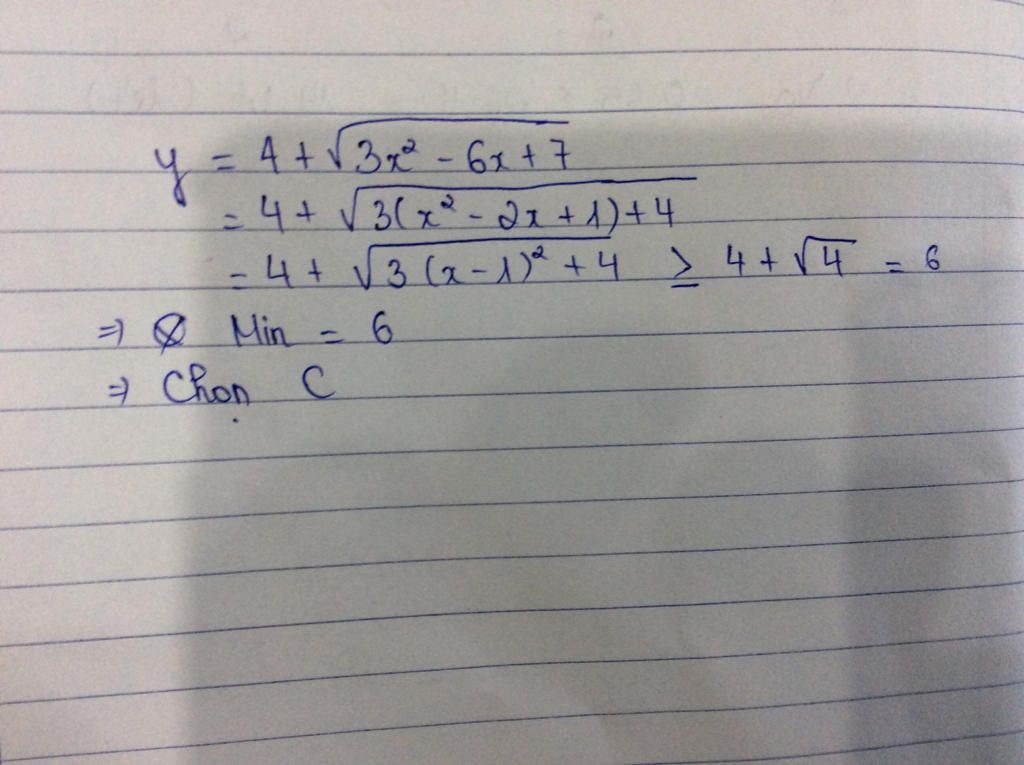 y = 4 + √3x² - 6x + 7
= 4 + √3(x² - 2x + 1) + 4
= 4 + √3(x - 1)² + 4 ≥ 4 + √4 = 6
⇒ Min = 6
⇒ Chọn C